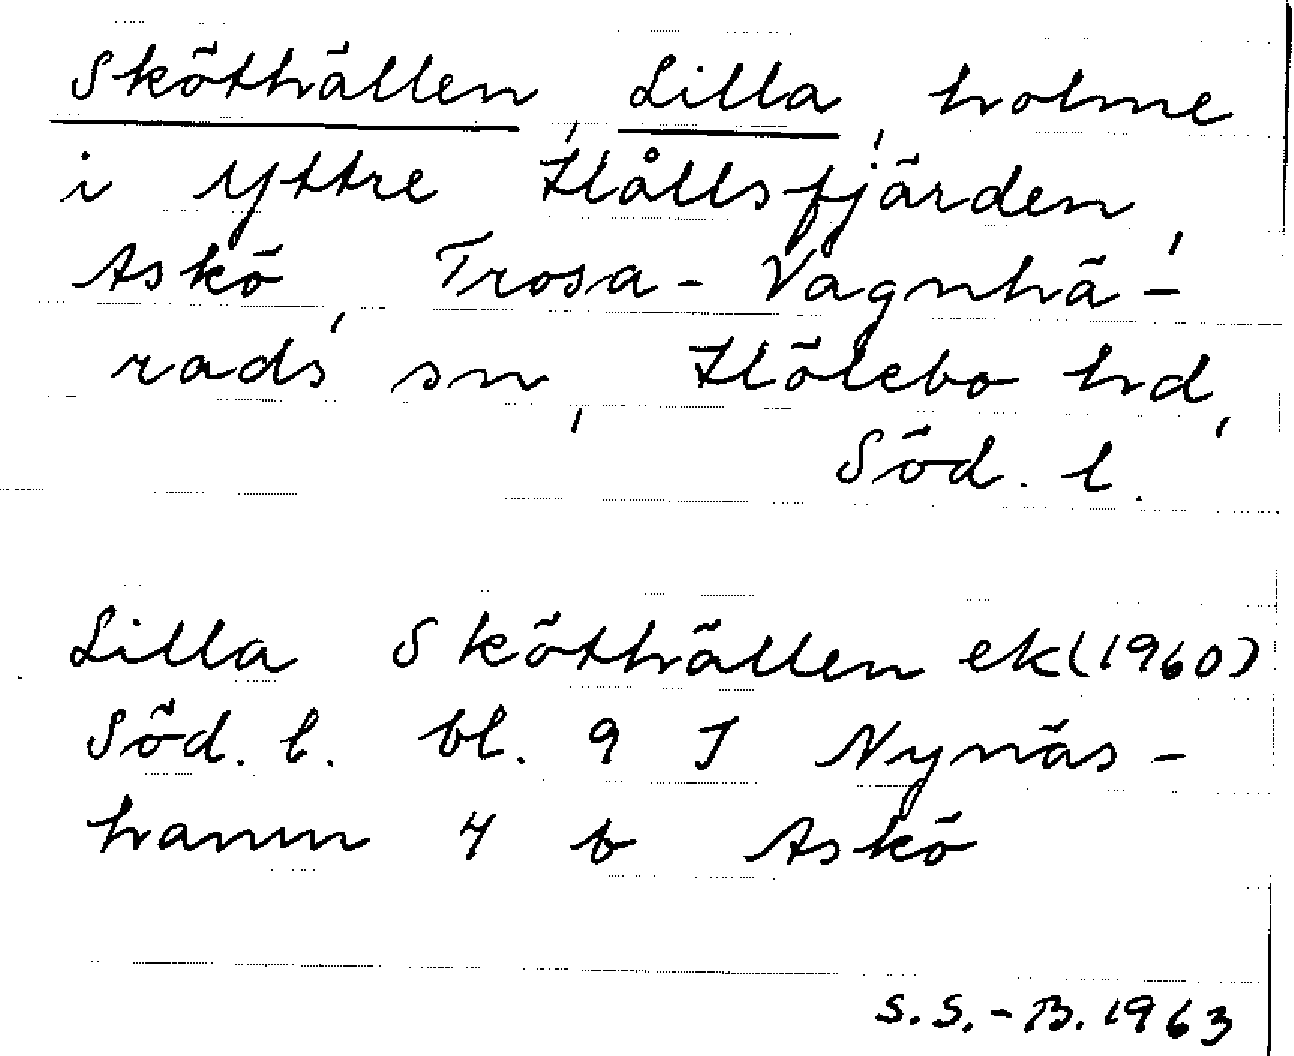 Sköthällen, Lilla, holme
i yttre Hållsfjärden,
Askö, Trosa-Vagnhä-
rads sn, Hölebo hd,
Söd. l.
Lilla Sköthällen ek (1960)
Söd. l. bl. 9 I Nynäs-
hamn 4 b Askö
S.S.-B. 1963